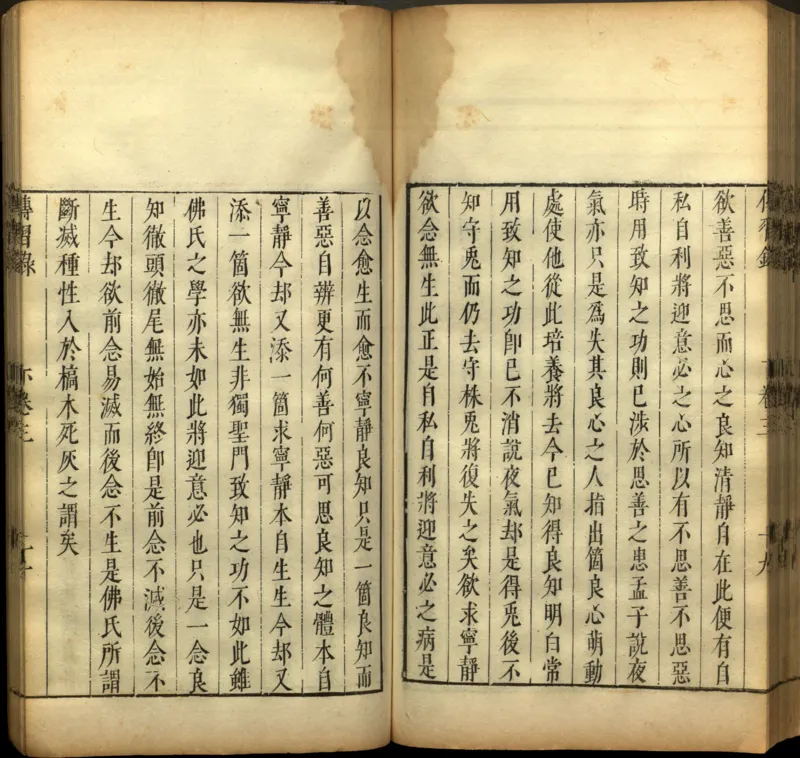 欲善惡不思而心之良知清靜自在此便有自
私自利將迎意必之心所以有不思善不思惡
時用致知之功則已涉於思善之患孟子說夜
氣亦只是爲失其良心之人指出箇良心萌動
處使他從此培養將去今已知得良知明白常
用致知之功卽已不消說夜氣却是得兎後不
知守兎而仍去守株兎將復失之矣欲求寧靜
欲念無生此正是自私自利將迎意必之病是
以念愈生而愈不寧靜良知只是一箇良知而
善惡自辨更有何善何惡可思良知之體本自
寧靜今却又添一箇求寧靜本自生生今却又
添一箇欲無生非獨聖門致知之功不如此雖
佛氏之學亦未如此將迎意必也只是一念良
知徹頭徹尾無始無終卽是前念不滅後念不
生今却欲前念易滅而後念不生是佛氏所謂
斷滅種性入於槁木死灰之謂矣
傳習錄
卷三